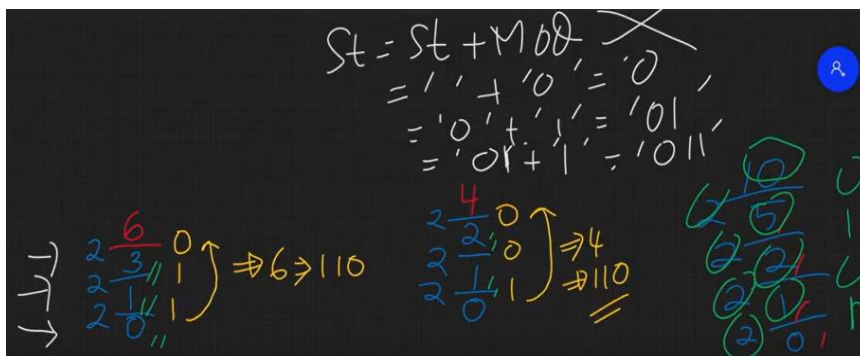 St = St + MOD
= '' + '0' = '0
= '0' + '1' = '01'
= '01 + '1' = '011'
2 6 0
2 3 1
2 1 1
0
⇒ 6 ⇒ 110
2 4 0
2 2 0
2 1 1
0
⇒ 4
⇒ 110
2 10
2 5
2 2
2 1
0